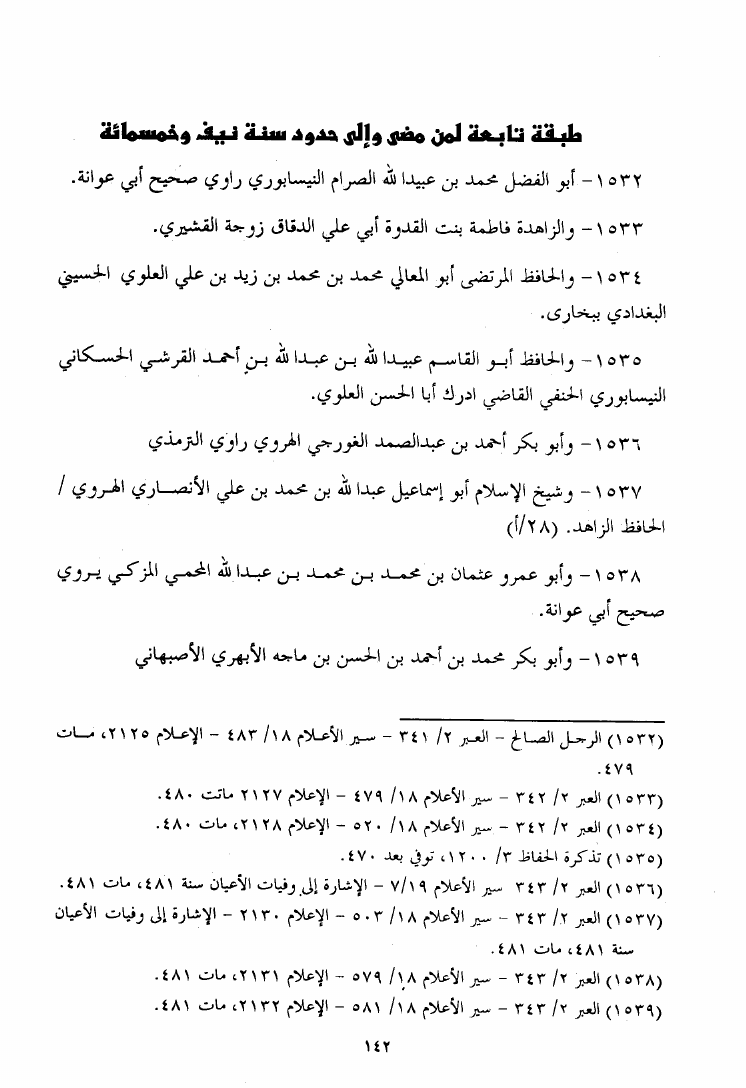 طبقة تابعة لمن مضى وإلى حدود سنة نيف وخمسمائة
١٥٣٢- أبو الفضل محمد بن عبيدا لله الصرام النيسابوري راوي صحيح أبي عوانة.
١٥٣٣- والزاهدة فاطمة بنت القدوة أبي علي الدقاق زوجة القشيري.
١٥٣٤- والحافظ المرتضى أبو المعالي محمد بن محمد بن زيد بن علي العلوي الحسيني
البغدادي ببخارى.
١٥٣٥- والحافظ أبو القاسم عبيدا لله بن عبدا لله بن أحمد القرشي الحسكاني
النيسابوري الحنفي القاضي ادرك أبا الحسن العلوي.
١٥٣٦- وأبو بكر أحمد بن عبدالصمد الغورجي الهروي راوي الترمذي
١٥٣٧- وشيخ الإسلام أبو إسماعيل عبدا لله بن محمد بن علي الأنصاري الهروي /
الحافظ الزاهد. (٢٨/أ)
١٥٣٨- وأبو عمرو عثمان بن محمد بن محمد بن عبدا لله المحمي المزكي يروي
صحيح أبي عوانة.
١٥٣٩- وأبو بكر محمد بن أحمد بن الحسن بن ماجه الأبهري الأصبهاني
(١٥٣٢) الرجل الصالح - العبر ٢/ ٣٤١ - سير الأعلام ١٨/ ٤٨٣ - الإعلام ٢١٢٥، مات
٤٧٩.
(١٥٣٣) العبر ٢/ ٣٤٢ - سير الأعلام ١٨/ ٤٧٩ - الإعلام ٢١٢٧ ماتت ٤٨٠.
(١٥٣٤) العبر ٢/ ٣٤٢ - سير الأعلام ١٨/ ٥٢٠ - الإعلام ٢١٢٨، مات ٤٨٠.
(١٥٣٥) تذكرة الحفاظ ٣/ ١٢٠٠، توفي بعد ٤٧٠.
(١٥٣٦) العبر ٢/ ٣٤٣ سير الأعلام ٧/١٩ - الإشارة إلى وفيات الأعيان سنة ٤٨١، مات ٤٨١.
(١٥٣٧) العبر ٢/ ٣٤٣ - سير الأعلام ١٨/ ٥٠٣ - الإعلام ٢١٣٠ - الإشارة إلى وفيات الأعيان
سنة ٤٨١، مات ٤٨١.
(١٥٣٨) العبر ٢/ ٣٤٣ - سير الأعلام ١٨/ ٥٧٩ - الإعلام ٢١٣١، مات ٤٨١.
(١٥٣٩) العبر ٢/ ٣٤٣ - سير الأعلام ١٨/ ٥٨١ - الإعلام ٢١٣٢، مات ٤٨١.
١٤٢